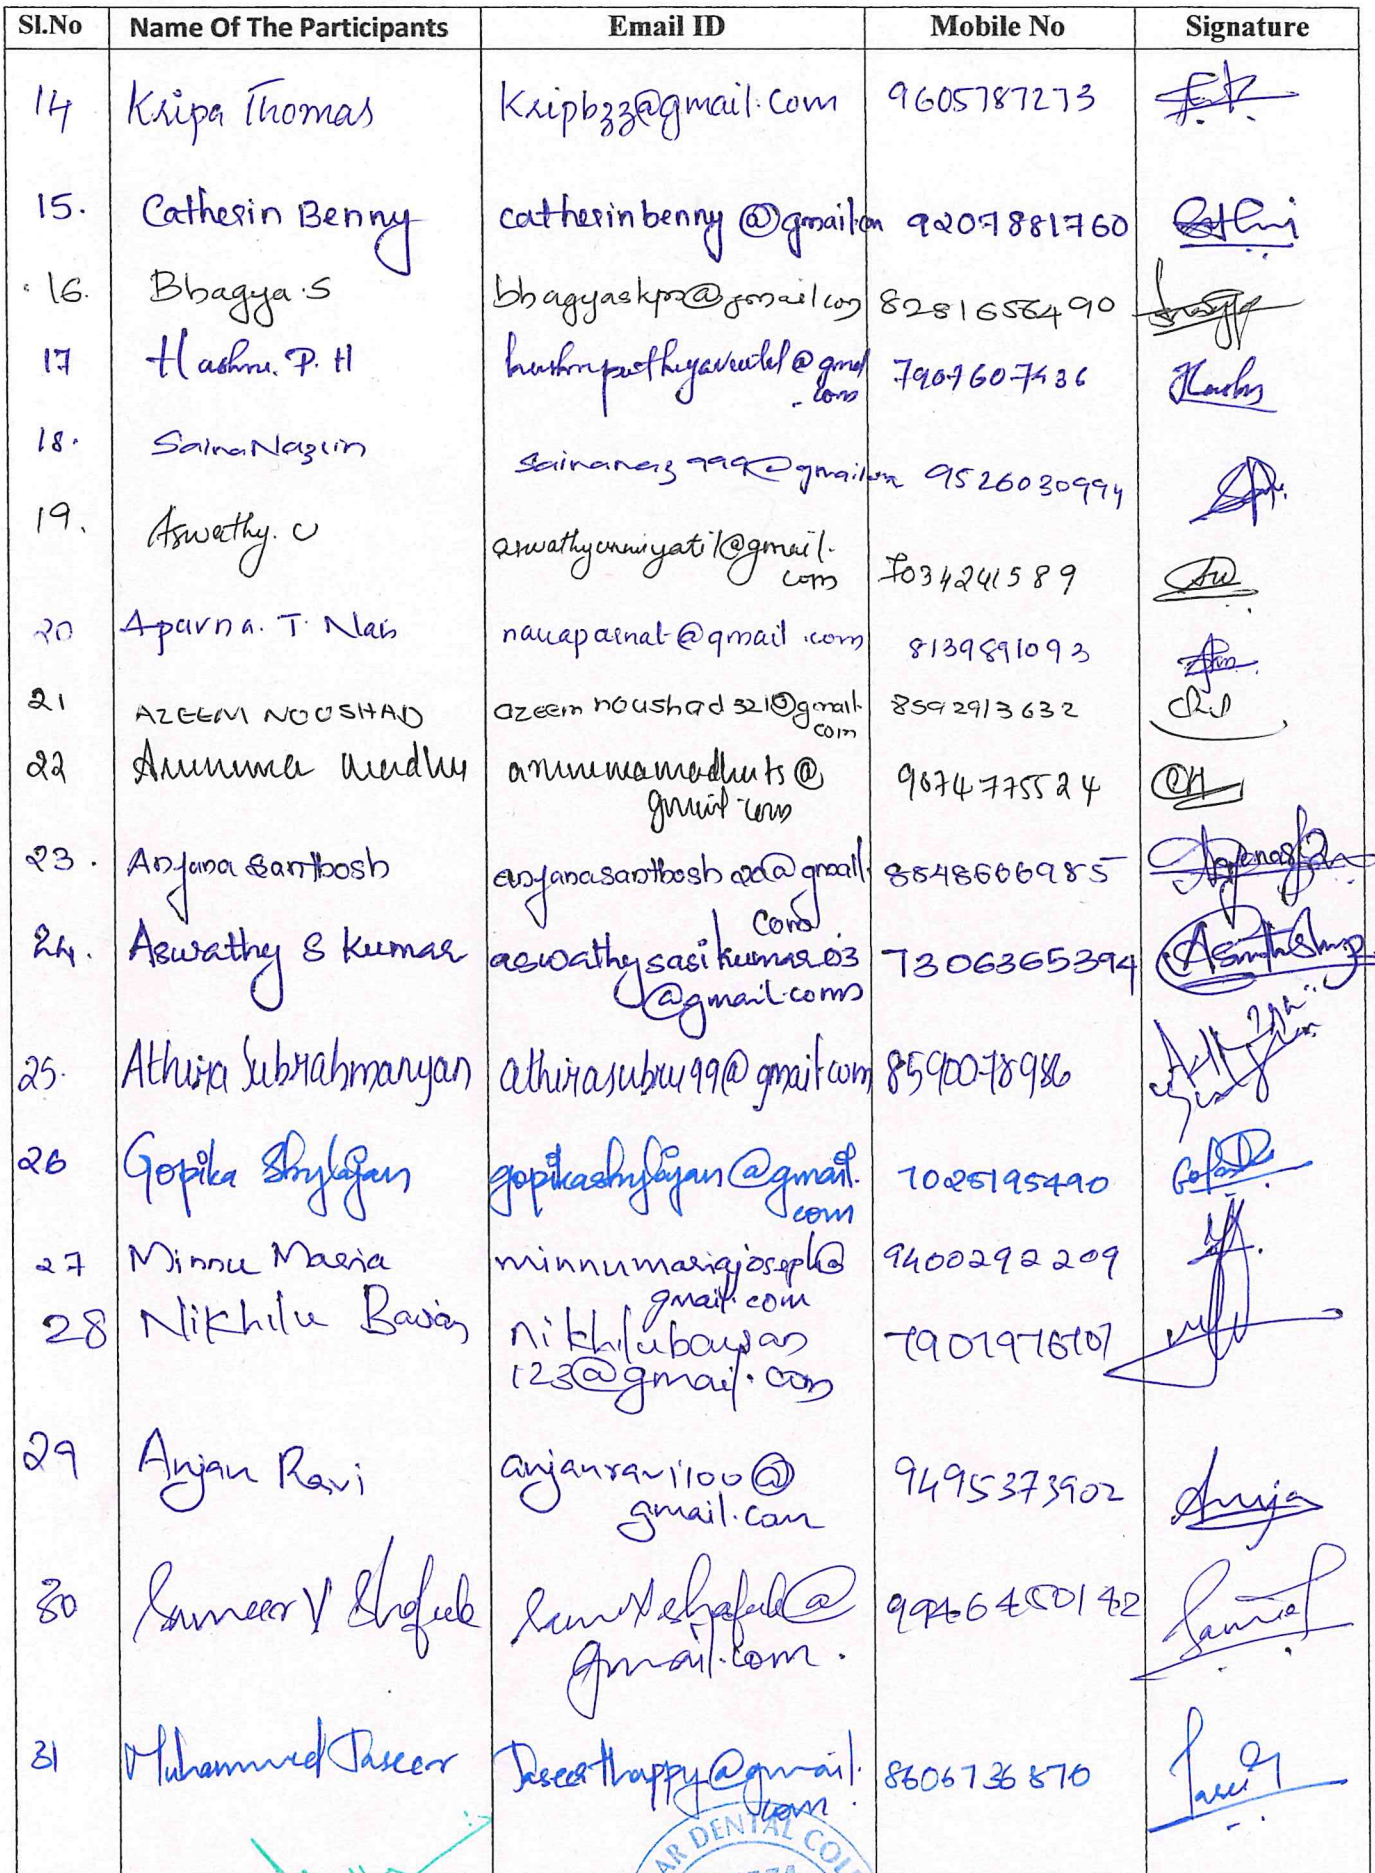 Sl.No Name Of The Participants Email ID Mobile No Signature
14 Kripa Thomas Kripbzz@gmail.com 9605787273
15. Catherin Benny catherinbenny@gmail.com 9207881760
16. Bhagya.S bhagyaskpz@gmail.com 8281656490
17 Hashna. P. H @gmail
.com
18. Saina Nazrin sainanaz999@gmail.com 9526030994
19. Aswathy. U
aswathyunniyatil@gmail.
com 7034241589
20 Aparna. T. Nair @gmail.com 8139891093
21 AZEEM NOUSHAD azeemnoushad321@gmail.
com 8592913632
22 @
gmail.com 9074775524
23. Anjana Santhosh anjanasanthosh @gmail.
com 8548606985
24. Aswathy S Kumar aswathysasikumar03
@gmail.com 7306365394
25. Athira Subrahmanyan athirasubru99@gmail.com 8590078986
26 Gopika Shylajan gopikashylajan@gmail.
com 7025195490
27 Minnu Maria minnumariajoseph@
gmail.com 9400292209
28 Nikhilu Bavan
123@gmail.com
29 Anjan Ravi anjanravi100@
gmail.com 9495373902
30 Sameer V Shafeek
gmail.com.
31 Muhammed Jaseer Jaseerthappy@gmail.
com 8606736870
AR DENTAL COL